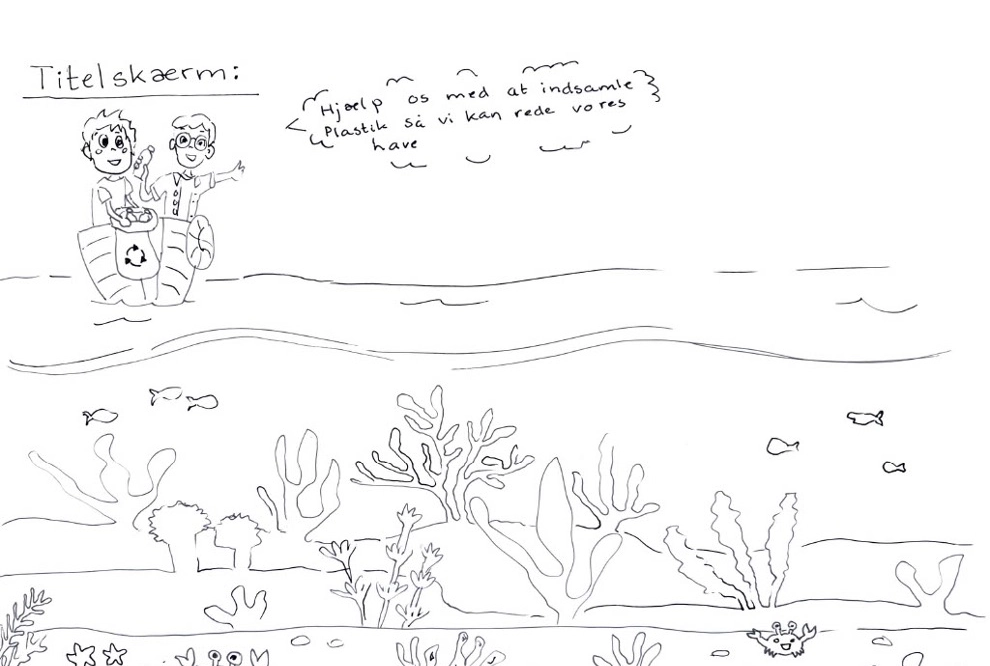 Titelskærm:
Hjælp os med at indsamle
Plastik så vi kan rede vores
have